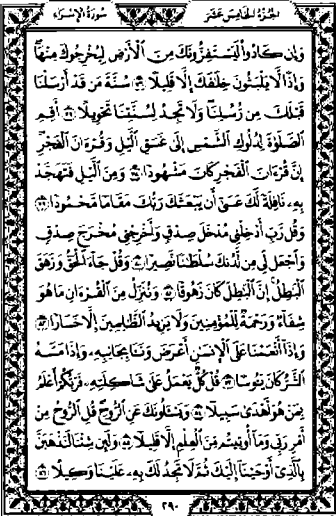 الجزء الخامس عشر سورة الإسراء
وَإِن كَادُوا۟ لَيَسْتَفِزُّونَكَ مِنَ ٱلْأَرْضِ لِيُخْرِجُوكَ مِنْهَا
وَإِذًا لَّا يَلْبَثُونَ خِلَٰفَكَ إِلَّا قَلِيلًا ٧٦ سُنَّةَ مَن قَدْ أَرْسَلْنَا
قَبْلَكَ مِن رُّسُلِنَا وَلَا تَجِدُ لِسُنَّتِنَا تَحْوِيلًا ٧٧ أَقِمِ
ٱلصَّلَوٰةَ لِدُلُوكِ ٱلشَّمْسِ إِلَىٰ غَسَقِ ٱلَّيْلِ وَقُرْءَانَ ٱلْفَجْرِ
إِنَّ قُرْءَانَ ٱلْفَجْرِ كَانَ مَشْهُودًا ٧٨ وَمِنَ ٱلَّيْلِ فَتَهَجَّدْ
بِهِۦ نَافِلَةً لَّكَ عَسَىٰٓ أَن يَبْعَثَكَ رَبُّكَ مَقَامًا مَّحْمُودًا ٧٩
وَقُل رَّبِّ أَدْخِلْنِى مُدْخَلَ صِدْقٍ وَأَخْرِجْنِى مُخْرَجَ صِدْقٍ
وَٱجْعَل لِّى مِن لَّدُنكَ سُلْطَٰنًا نَّصِيرًا ٨٠ وَقُلْ جَآءَ ٱلْحَقُّ وَزَهَقَ
ٱلْبَٰطِلُ إِنَّ ٱلْبَٰطِلَ كَانَ زَهُوقًا ٨١ وَنُنَزِّلُ مِنَ ٱلْقُرْءَانِ مَا هُوَ
شِفَآءٌ وَرَحْمَةٌ لِّلْمُؤْمِنِينَ وَلَا يَزِيدُ ٱلظَّٰلِمِينَ إِلَّا خَسَارًا ٨٢
وَإِذَآ أَنْعَمْنَا عَلَى ٱلْإِنسَٰنِ أَعْرَضَ وَنَـَٔا بِجَانِبِهِۦ وَإِذَا مَسَّهُ
ٱلشَّرُّ كَانَ يَـُٔوسًا ٨٣ قُلْ كُلٌّ يَعْمَلُ عَلَىٰ شَاكِلَتِهِۦ فَرَبُّكُمْ أَعْلَمُ
بِمَنْ هُوَ أَهْدَىٰ سَبِيلًا ٨٤ وَيَسْـَٔلُونَكَ عَنِ ٱلرُّوحِ قُلِ ٱلرُّوحُ مِنْ
أَمْرِ رَبِّى وَمَآ أُوتِيتُم مِّنَ ٱلْعِلْمِ إِلَّا قَلِيلًا ٨٥ وَلَئِن شِئْنَا لَنَذْهَبَنَّ
بِٱلَّذِىٓ أَوْحَيْنَآ إِلَيْكَ ثُمَّ لَا تَجِدُ لَكَ بِهِۦ عَلَيْنَا وَكِيلًا ٨٦
٢٩٠